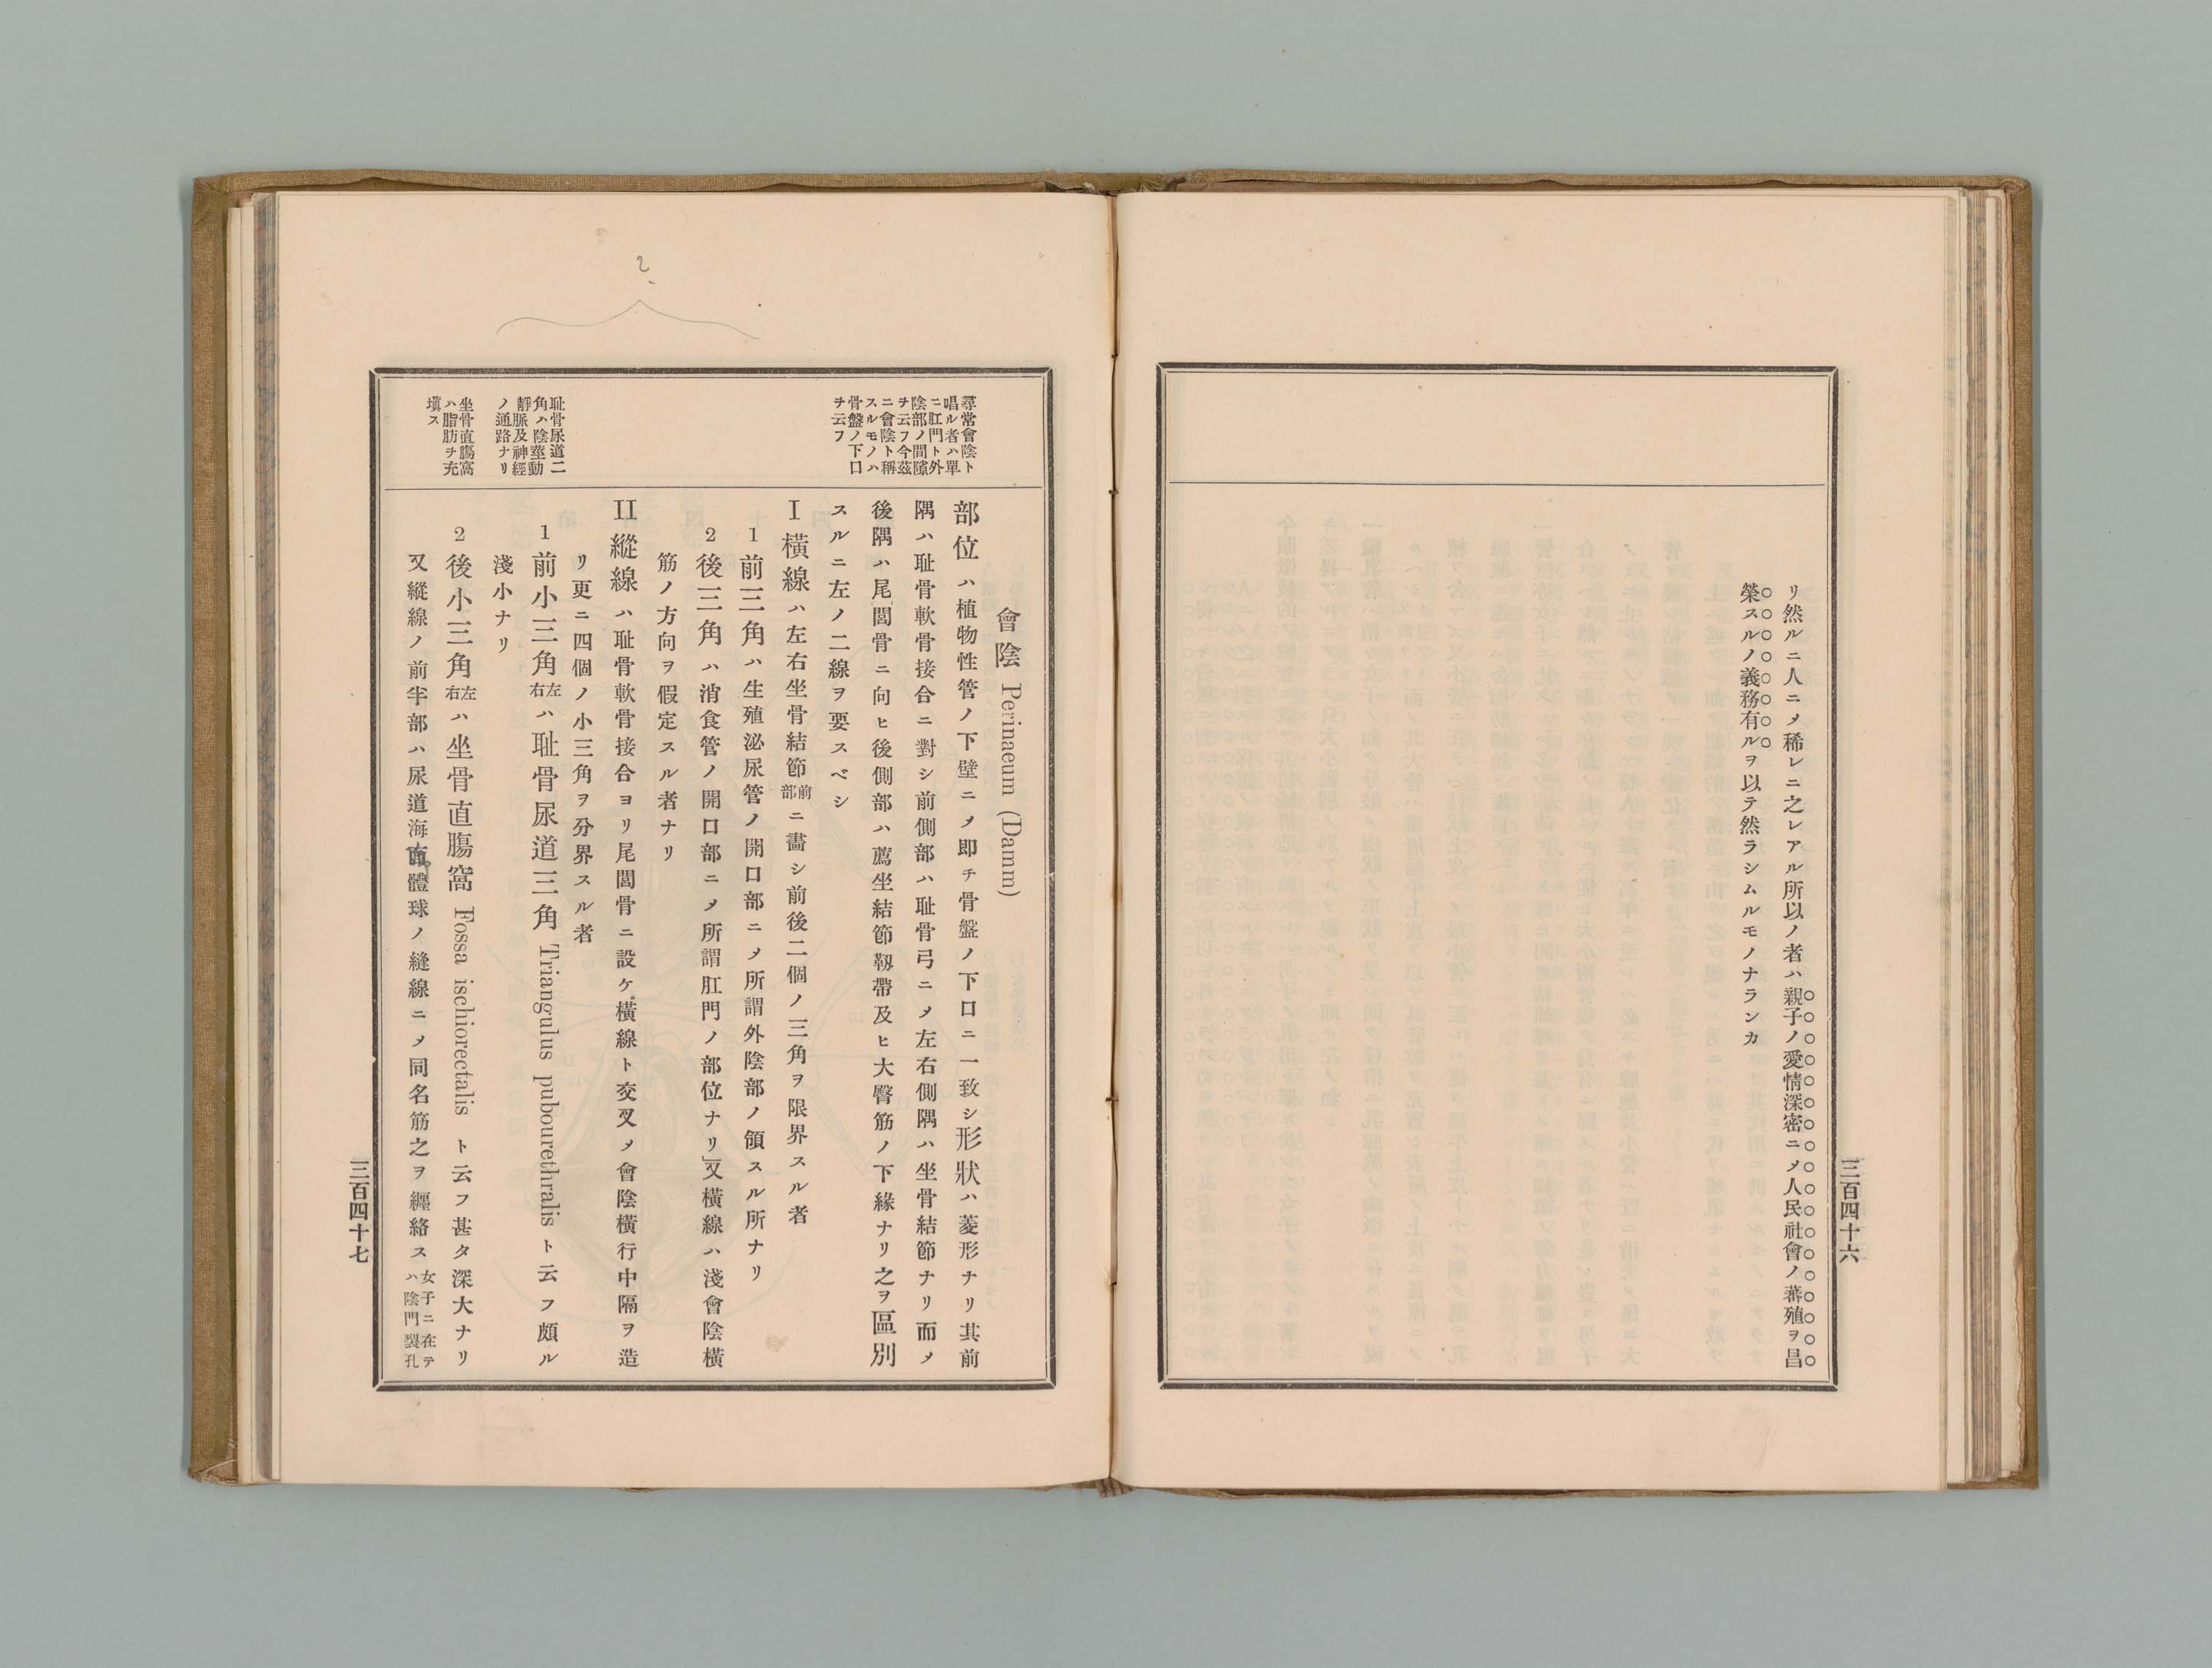 リ然ルニ人ニ〆稀レニ之レアル所以ノ者ハ親子ノ愛情深密ニ〆人民社會ノ蕃殖ヲ昌
榮スルノ義務有ルヲ以テ然ラシムルモノナランカ
三百四十六
會陰 Perinaeum (Damm)
尋常會陰ト
唱ル者ハ單
ニ肛門ト外
陰部ノ間隙
ヲ云フ今茲
ニ會陰ト稱
スルモノハ
骨盤ノ下口
ヲ云フ
部位ハ植物性管ノ下壁ニ〆即チ骨盤ノ下口ニ一致シ形狀ハ菱形ナリ其前
隅ハ耻骨軟骨接合ニ對シ前側部ハ耻骨弓ニ〆左右側隅ハ坐骨結節ナリ而〆
後隅ハ尾閭骨ニ向ヒ後側部ハ薦坐結節靱帶及ヒ大臀筋ノ下緣ナリ之ヲ區別
スルニ左ノ二線ヲ要スベシ
I 橫線ハ左右坐骨結節前部ニ畵シ前後二個ノ三角ヲ限界スル者
1 前三角ハ生殖泌尿管ノ開口部ニ〆所謂外陰部ノ領スル所ナリ
2 後三角ハ消食管ノ開口部ニ〆所謂肛門ノ部位ナリ」又橫線ハ淺會陰橫
筋ノ方向ヲ假定スル者ナリ
II 縱線ハ耻骨軟骨接合ヨリ尾閭骨ニ設ケ橫線ト交叉〆會陰橫行中隔ヲ造
リ更ニ四個ノ小三角ヲ分界スル者
耻骨尿道二
角ハ陰莖動
靜脈及神經
ノ通路ナリ
1 前小三角左右ハ耻骨尿道三角 Triangulus pubourethralis ト云フ頗ル
淺小ナリ
坐骨直膓窩
ハ脂肪ヲ充
塡ス
2 後小三角左右ハ坐骨直膓窩 Fossa ischiorectalis ト云フ甚タ深大ナリ
又縱線ノ前半部ハ尿道海面體球ノ縫線ニ〆同名筋之ヲ纒絡ス女子ニ在テハ陰門裂孔
三百四十七
?